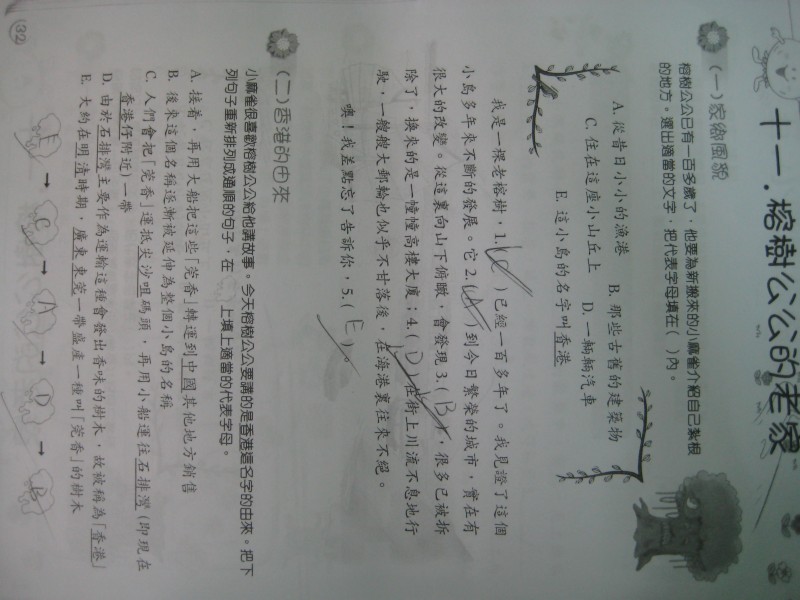 十一．榕樹公公的老家
（一）家鄉風貌
榕樹公公已有一百多歲了，他要為新搬來的小麻雀介紹自己紮根
的地方。選出適當的文字，把代表字母填在（ ）內。
A. 從昔日小小的漁港　B. 那些古舊的建築物
C. 住在這座小山丘上　D. 一輛輛汽車
E. 這小島的名字叫香港
我是一棵老榕樹，1.（C）已經一百多年了。我見證了這個
小島多年來不斷的發展。它2.（A）到今日繁榮的城市，實在有
很大的改變。從這裏向山下俯瞰，會發現3.（B），很多已被拆
除了，換來的是一幢幢高樓大廈；4.（D）在街上川流不息地行
駛，一艘艘大郵輪也似乎不甘落後，在海港裏往來不絕。
噢！我差點忘了告訴你，5.（E）。
（二）香港的由來
小麻雀很喜歡榕樹公公給他講故事，今天榕樹公公要講的是香港這名字的由來。把下
列句子重新排列成通順的句子，在　上填上適當的代表字母。
A. 接着，再用大船把這些「莞香」轉運到中國其他地方銷售
B. 後來這個名稱逐漸被延伸為整個小島的名稱
C. 人們會把「莞香」運抵尖沙咀碼頭，再用小船運往石排灣（即現在
香港仔附近）一帶
D. 由於石排灣主要作為運輸這種會發出香味的樹木，故被稱為「香港」
E. 大約在明清時期，廣東東莞一帶盛產一種叫「莞香」的樹木
E → C → A → D → B
32